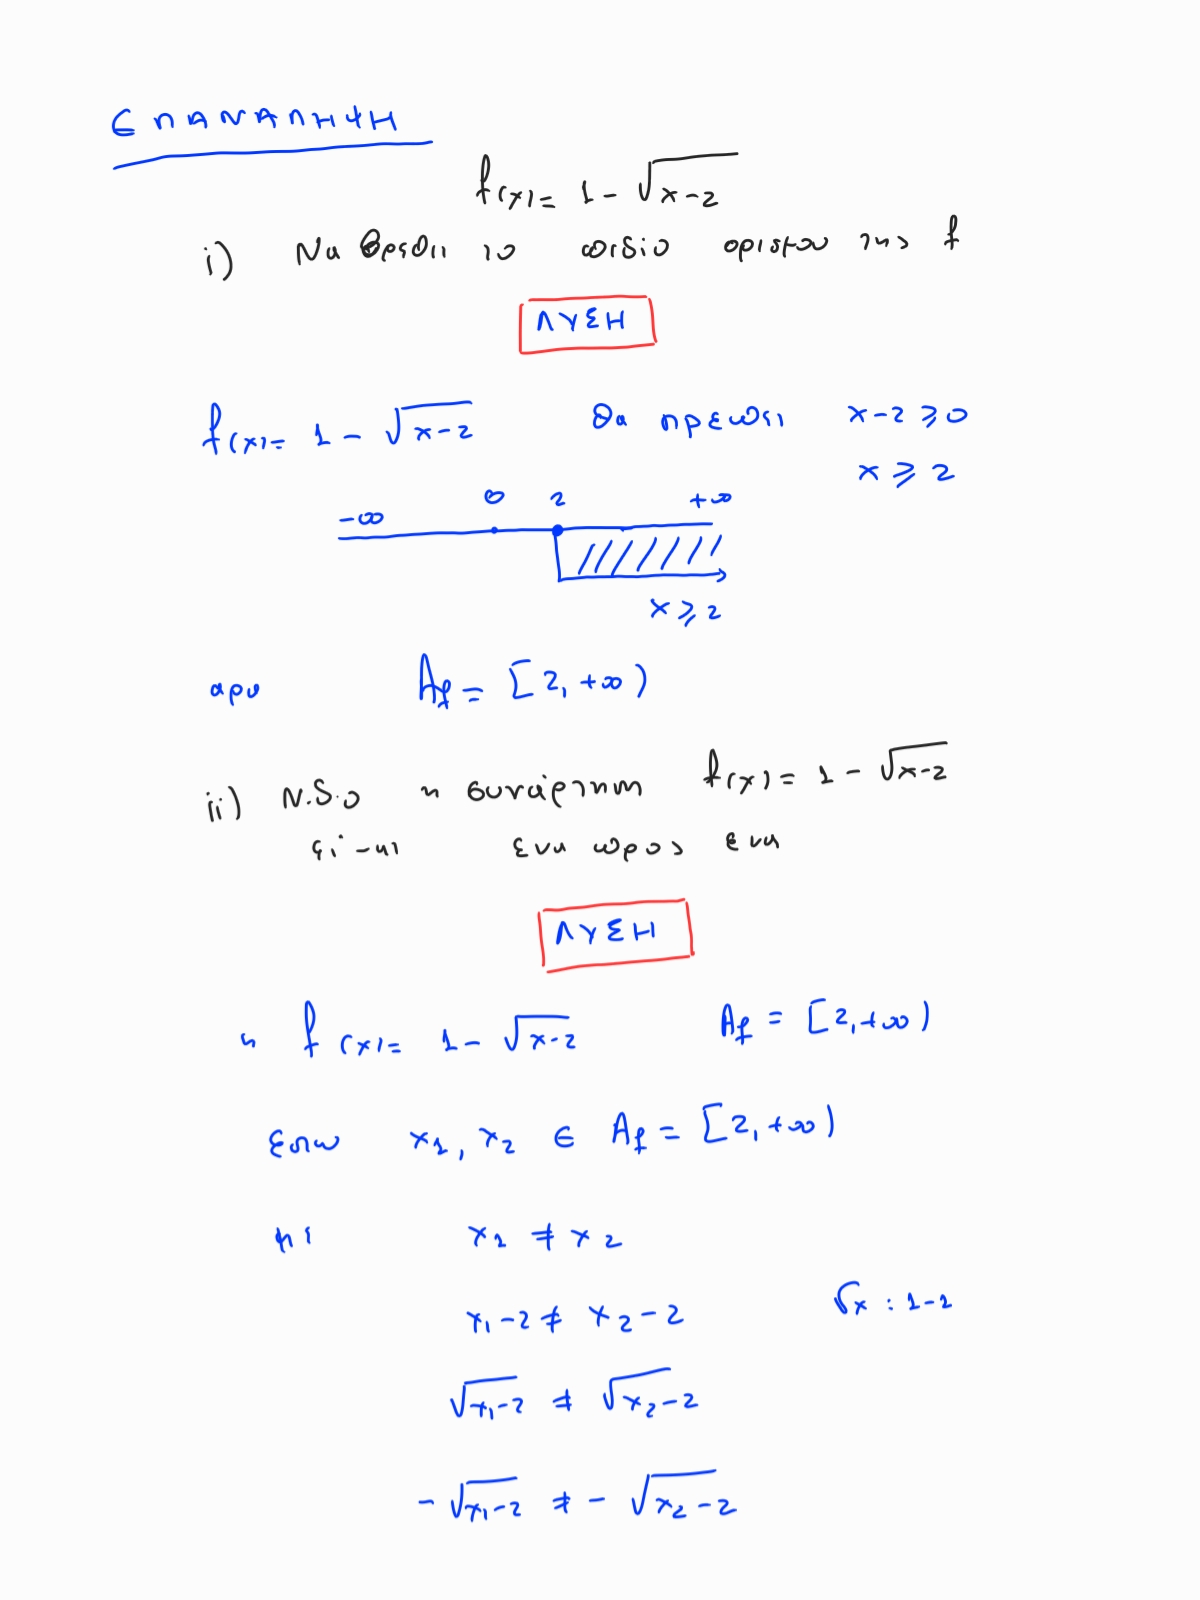 ΕΠΑΝΑΛΗΨΗ
f(x) = 1 - √(x-2)
i) Να βρεθει το πεδιο ορισμου της f
ΛΥΣΗ
f(x) = 1 - √(x-2) θα πρεπει x-2 ≥ 0
x ≥ 2
-∞ 0 2 +∞
x ≥ 2
αρα A_f = [2, +∞)
ii) Ν.δ.ο η συνάρτηση f(x) = 1 - √(x-2)
ειναι ενα προς ενα
ΛΥΣΗ
η f(x) = 1 - √(x-2) A_f = [2, +∞)
εστω x₁, x₂ ∈ A_f = [2, +∞)
με x₁ ≠ x₂
x₁ - 2 ≠ x₂ - 2 √x : 1-1
√(x₁-2) ≠ √(x₂-2)
-√(x₁-2) ≠ -√(x₂-2)